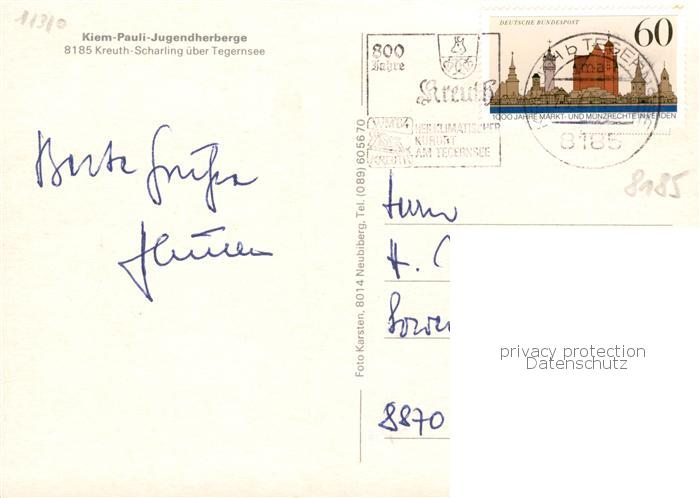 1131
Kiem-Pauli-Jugendherberge
8185 Kreuth-Scharling über Tegernsee
Beste Grüße
Foto Karsten, 8014 Neubiberg, Tel. (089) 6056 70
800
Jahre
Kreuth
HEILKLIMATISCHER
KURORT
AM TEGERNSEE
DEUTSCHE BUNDESPOST
60
1000 JAHRE MARKT- UND MÜNZRECHTE IN VERDEN
8185
8185
Herrn
H.
8870
privacy protection
Datenschutz